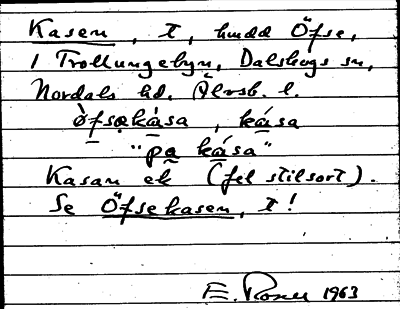 Kasen, t, hmdd Öfse,
i Trollungebyn, Dalskogs sn,
Nordals hd. Älvsb. l.
ö̀fsǝkása, kása
"pa kása"
Kasan ek (fel stilsort).
Se Öfsekasen, t!
E. 1963